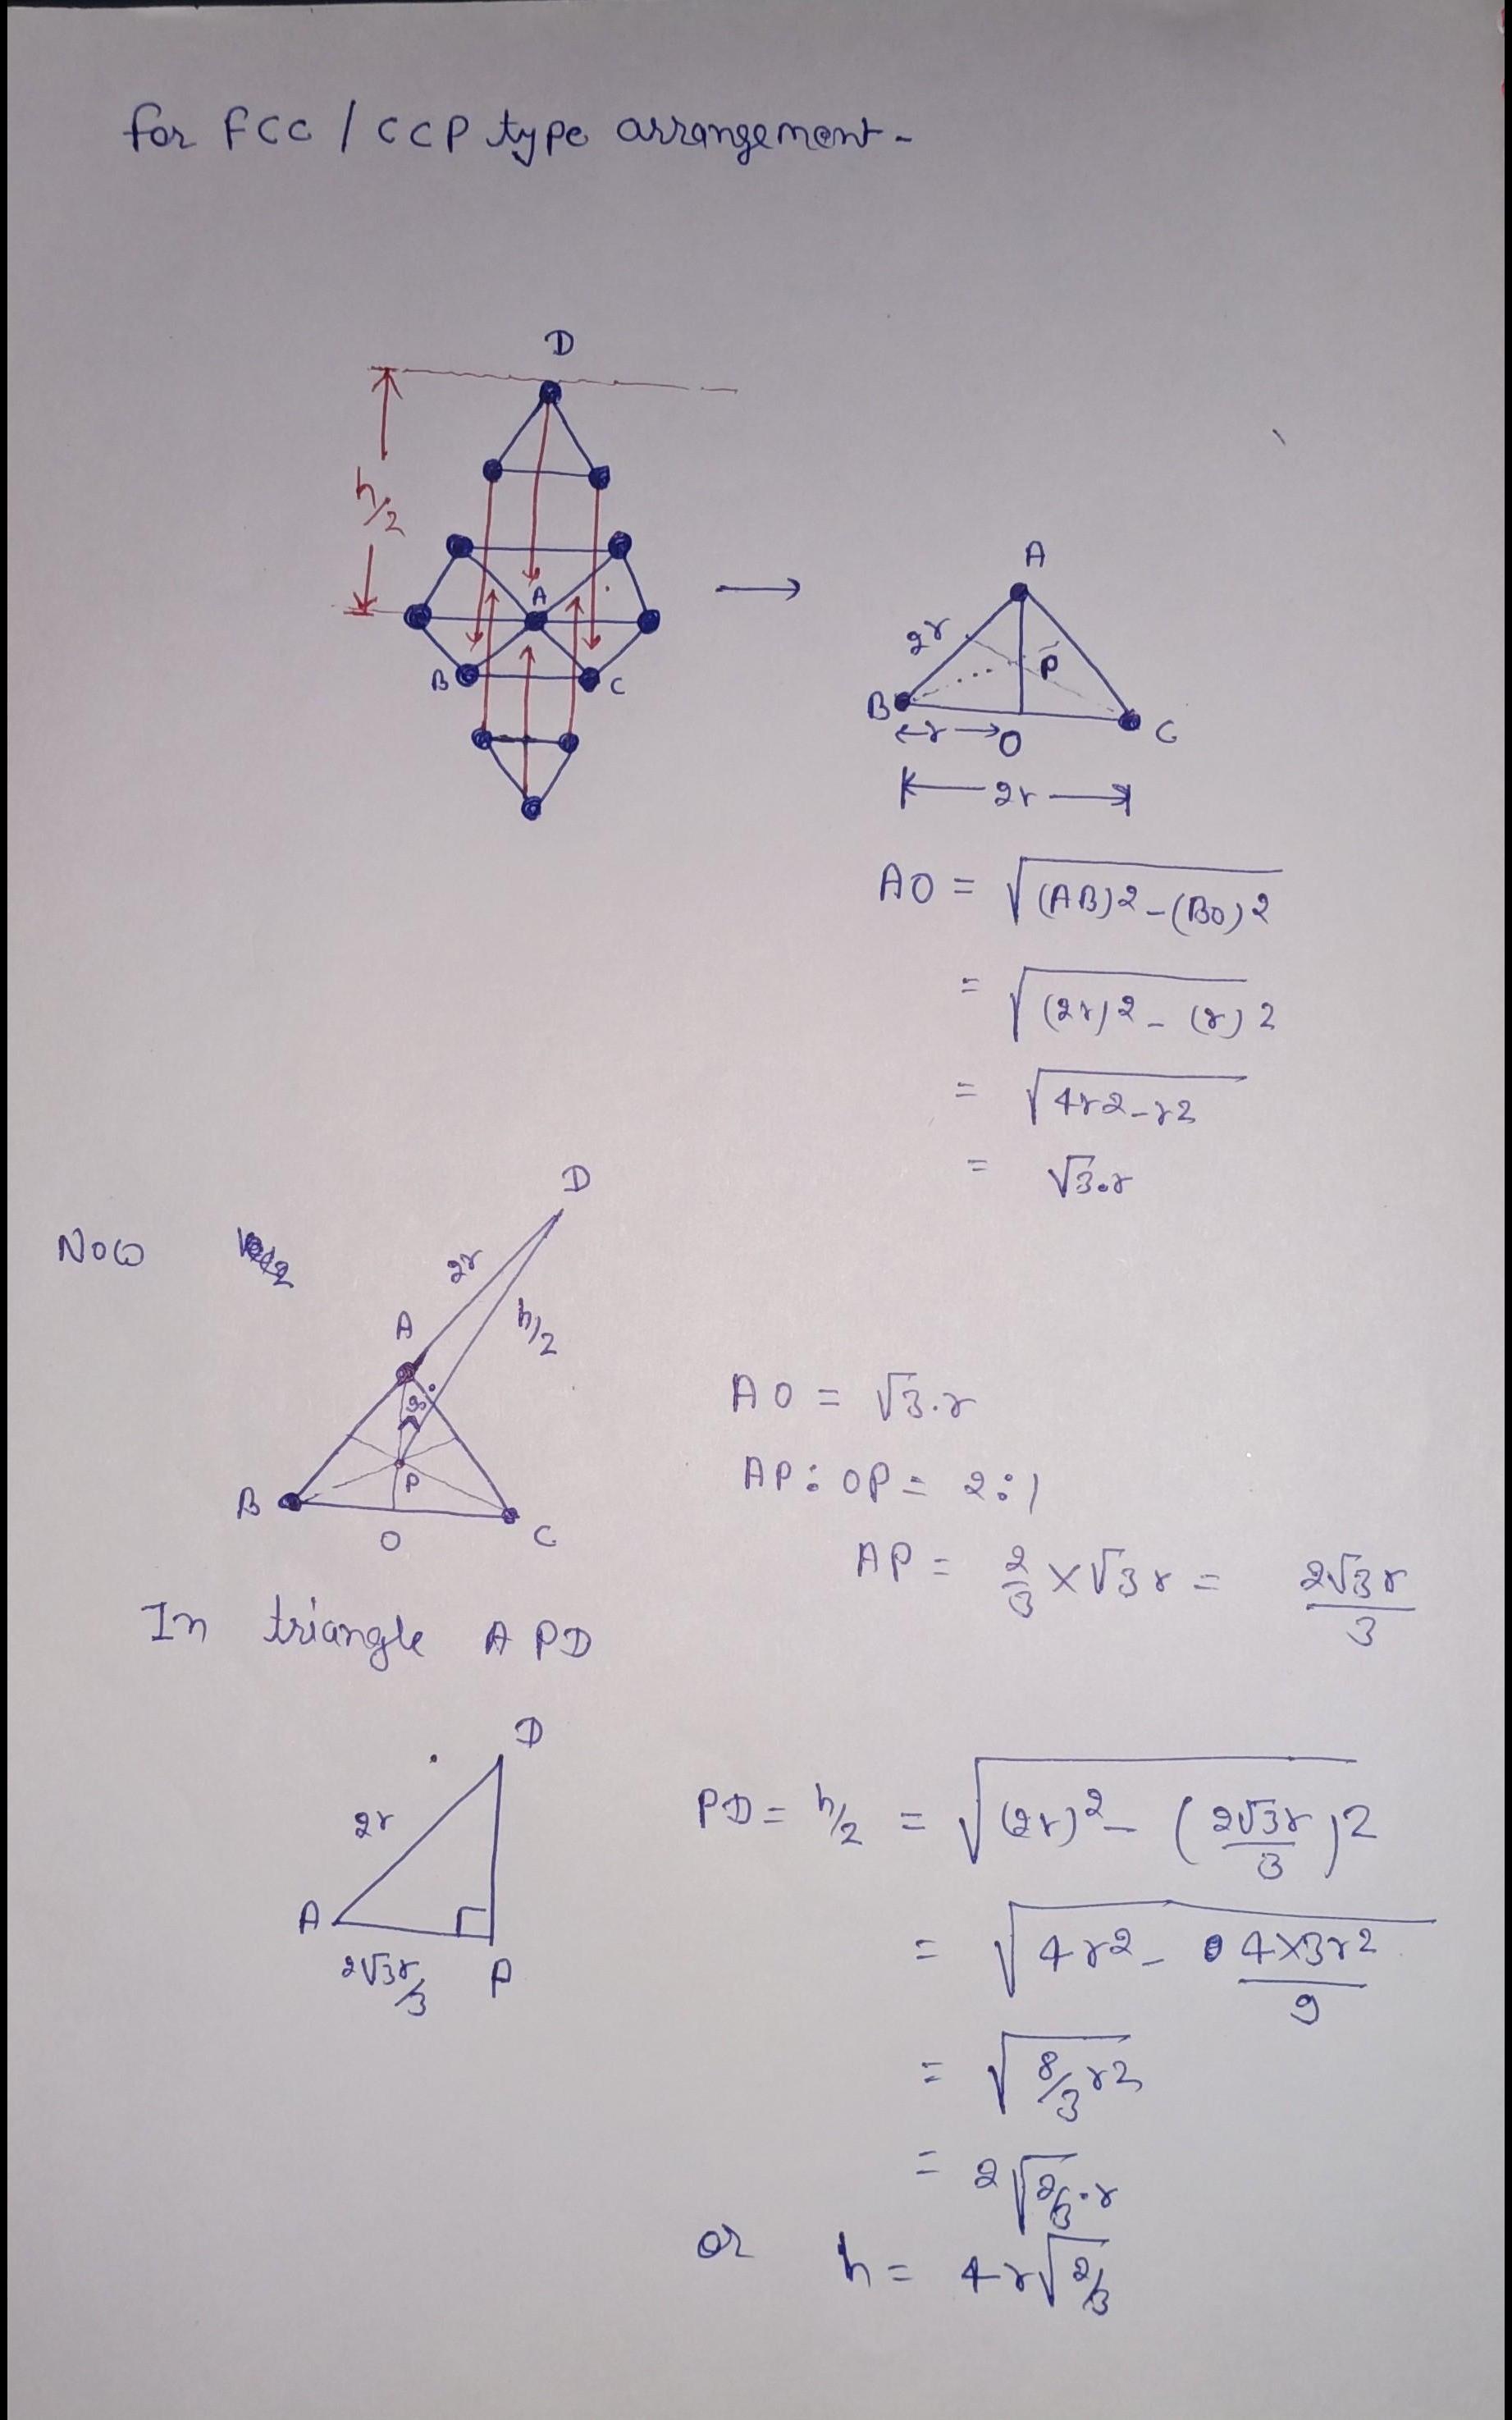 for FCC / CCP type arrangement -
D
h/2
A
B
C
A
2r
P
B
r
O
C
2r
AO = √(AB)2-(BO)2
= √(2r)2 - (r)2
= √4r2-r2
= √3.r
Now
D
2r
h/2
A
90°
B
P
O
C
AO = √3.r
AP : OP = 2:1
AP = 2/3 × √3r = 2√3r/3
In triangle APD
D
2r
A
2√3r/3
P
PD = h/2 = √(2r)² - (2√3r/3)2
= √4r2 - 4×3r2/9
= √8/3 r2
= 2√2/3.r
or h = 4r√2/3